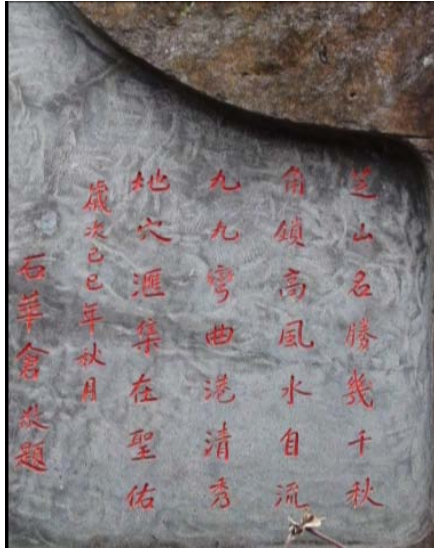 芝山名勝幾千秋
角鎖高風水自流
九九彎曲港清秀
地穴滙集在聖佑
歲次己巳年秋月
石華會敬題